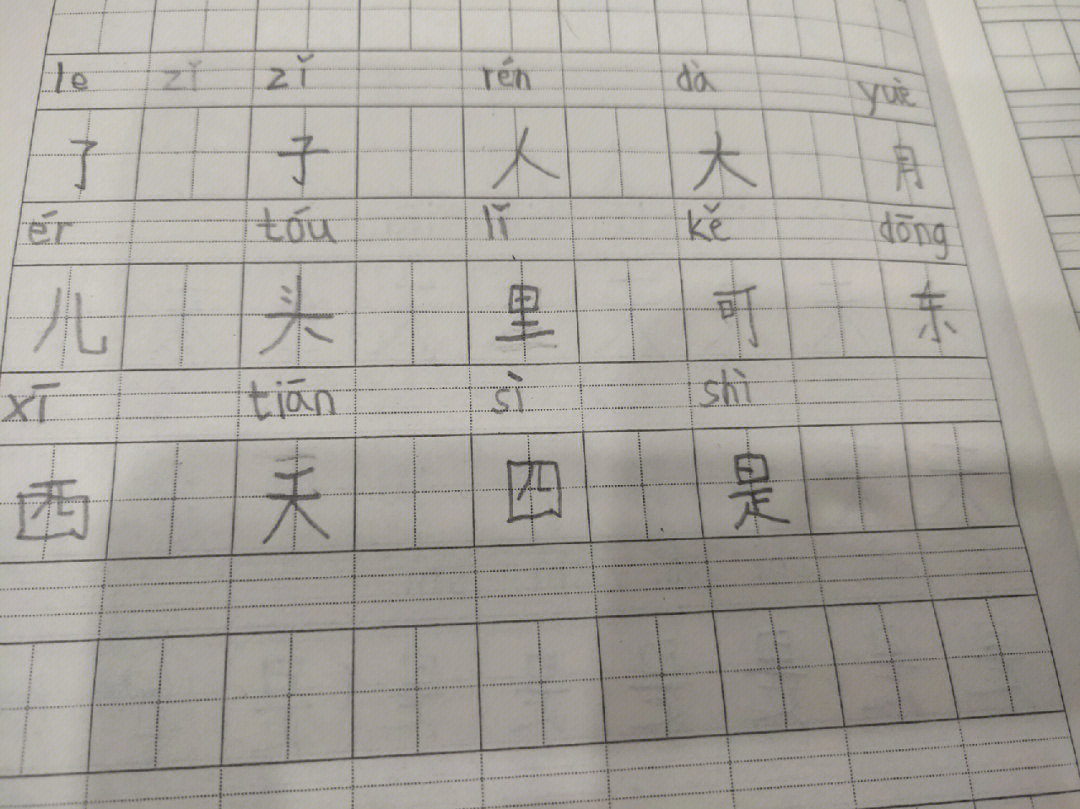 le zǐ zǐ rén dà yuè
了 子 人 大 月
ér tóu lǐ kě dōng
儿 头 里 可 东
xī tiān sì shì
西 天 四 是